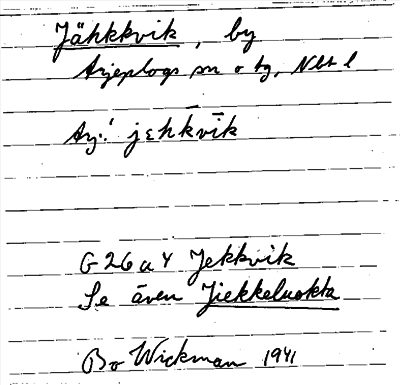 Jähkkvik, by
Arjeplogs sn o tg, Nbt l
Arj.: jɛhkvīk
G 26 a 4 Jekkvik
Se även Jiekkeluokta
Bo Wickman 1941